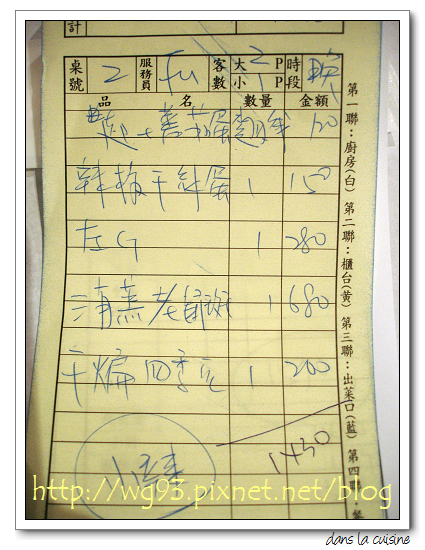 計
桌號 2 服務員 Fu 客數 大 2 P 小 1 P 時段 晚
品名 數量 金額
120
辣椒干絲蛋 1 150
左G 1 280
清蒸老鼠斑 1 680
干煸四季豆 1 200
1430
第一聯：廚房(白) 第二聯：櫃台(黃) 第三聯：出菜口(藍) 第四聯：
http://wg93.pixnet.net/blog
dans la cuisine